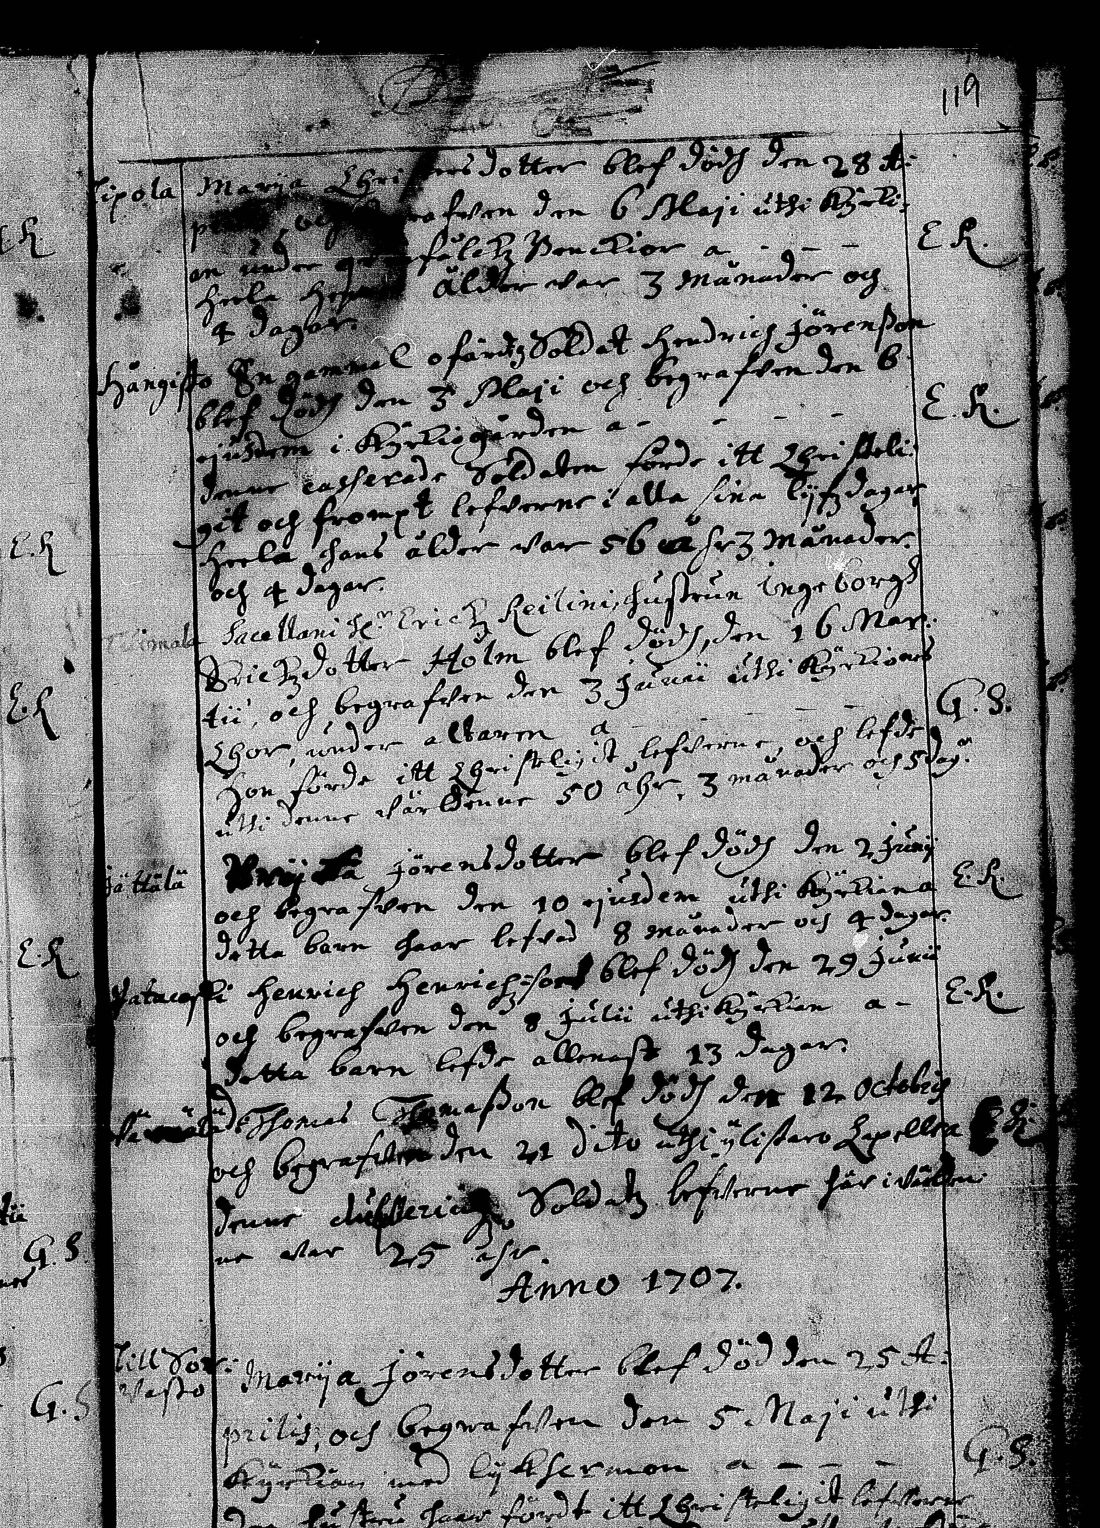 119
Sipola Marija Christersdotter blef dödh den 28 A:
prilis, och begrafven den 6 Maji uthi Kyrki:
an under Penckior a - - - E R.
Heela Hennes Ålder var 3 månader och
4 dagar.
Hångisto En gammal ofärdig Soldat Hendrich Jörensson
blef dödh den 3 Maji och begrafven den 6
ejusdem i Kyrkiogården a - - - - E. R.
denne casserade Soldaten förde itt Christeli:
git och fromt lefverne i alla sina lijfzdagar
Heela hans ålder var 56 åhr 3 månader.
och 4 dagar.
Sacellani Hr Erickz Reilini, hustrun Ingeborgh
Erickzdotter Holm blef dödh, den 16 Mar:
tii, och begrafven den 3 Junii uthi Kyrkiones
Chor, under altaren a - - - - - G. S.
Hon förde itt Christeligit lefverne, och lefde
uthi denne världenne 50 åhr, 3 månader och 5 dag:
Jättälä Jörensdotter blef dödh den 2 Junij
och begrafven den 10 ejusdem uthi Kyrkian a E. R.
detta barn haar lefvad 8 månader och 4 dagar.
Patacoski Henrich Henrichsson blef dödh den 29 Junii
och begrafven den 8 Julii uthi Kyrkian a - E. R.
detta barn lefde allenast 13 dagar.
Thomas Thomasson blef dödh den 12 Octobris
och begrafven den 21 dito uthi ylistaro Capellen E R:
denne Soldatz lefverne här i välden:
ne var 25 åhr.
Anno 1707.
Till Sor: Marija Jörensdotter blef död den 25 A:
vasto prilis, och begrafven den 5 Maji uthi
Kyrkian med lijkhsermon a - - - G. S.
den hustru haar fördt itt Christeligit lefverne
E R
E. R
E. R
E. R
G. S
G. S